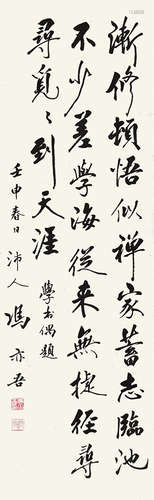 漸修頓悟似禅家蓄志臨池
不少差學海従来無捷径尋
尋覓〻到天涯 學书偶題
壬申春日沛人馮亦吾